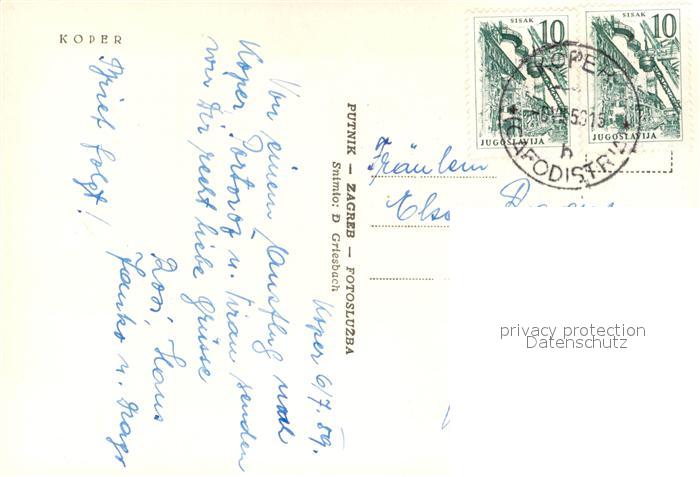 KOPER
SISAK
10
JUGOSLAVIJA
SISAK
10
JUGOSLAVIJA
KOPER
CAPODISTRIA
PUTNIK — ZAGREB — FOTOSLUŽBA
Snimio: D Griesbach
Koper 6/7. 59.
Von einem Ausflug nach
Koper, Portorož u. Piran senden
wir Dir recht liebe Grüsse
Rosi, Hans
Janko u. Drago
Brief folgt!
Fräulein
Else
privacy protection
Datenschutz